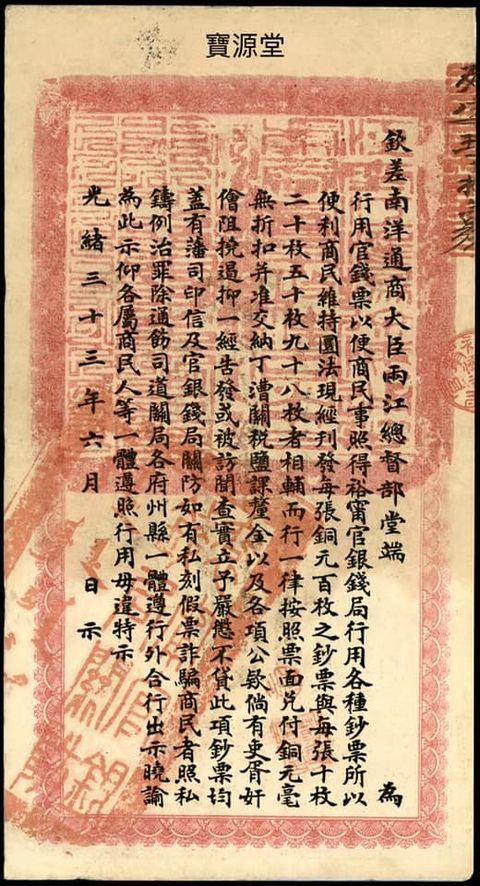 寶源堂
欽差南洋通商大臣兩江總督部堂端　為
行用官錢票以便商民事照得裕甯官銀錢局行用各種鈔票所以
便利商民維持圜法現經刊發每張銅元百枚之鈔票與每張十枚
二十枚五十枚九十八枚者相輔而行一律按照票面兌付銅元毫
無折扣并准交納丁漕關稅鹽課釐金以及各項公欵倘有吏胥奸
儈阻撓遏抑一經告發或被訪聞查實立予嚴懲不貸此項鈔票均
蓋有藩司印信及官銀錢局關防如有私刻假票詐騙商民者照私
鑄例治罪除通飭司道關局各府州縣一體遵行外合行出示曉諭
為此示仰各屬商民人等一體遵照行用毋違特示
光緒三十三年六月　日示